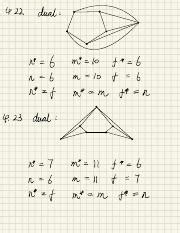 4.22. dual:
n* = 6 m* = 10 f* = 6
n = 6 m = 10 f = 6
n* = f m* = m f* = n
4.23 dual:
n* = 7 m* = 11 f* = 6
n = 6 m = 11 f = 7
n* = f m* = m f* = n